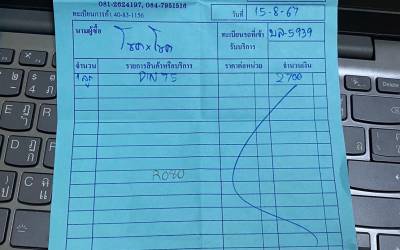 081-2624197, 084-7951516
ทะเบียนการค้า 40-83-1156
วันที่ 15-8-67
นามผู้ซื้อ โชค x โชค
ทะเบียนรถที่เข้ารับบริการ 5939
จำนวน รายการสินค้าหรือบริการ ราคาต่อหน่วย จำนวนเงิน
1 ลูก DIN 75 2700
2080